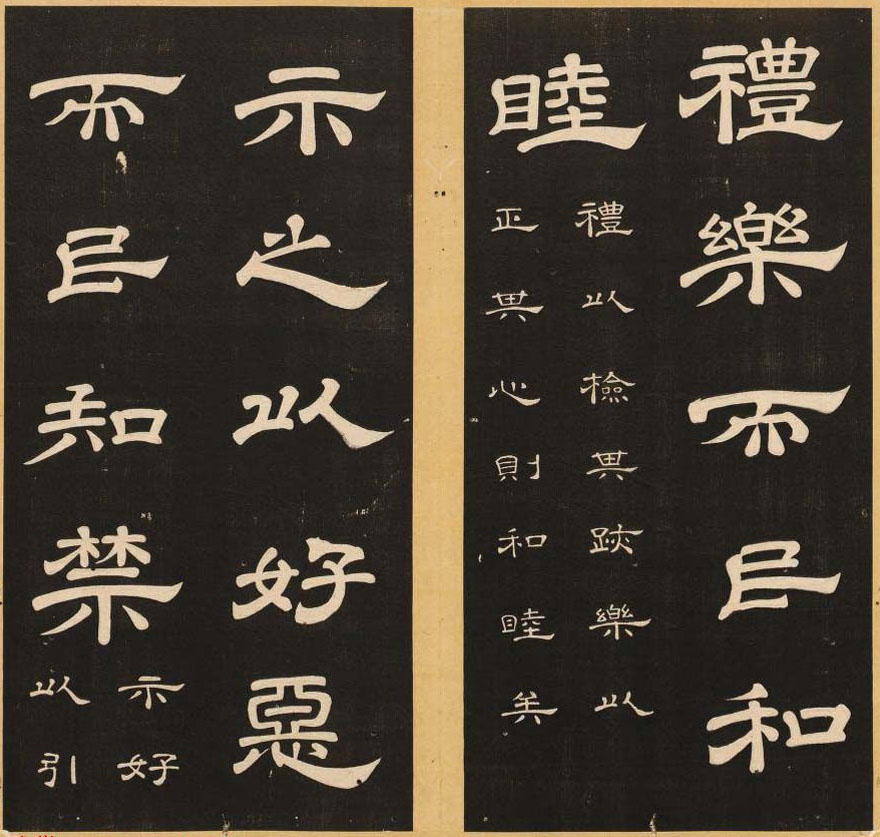 禮樂而民和
睦
禮以檢其跡樂以
正其心則和睦矣
示之以好惡
而民知禁
示好
以引